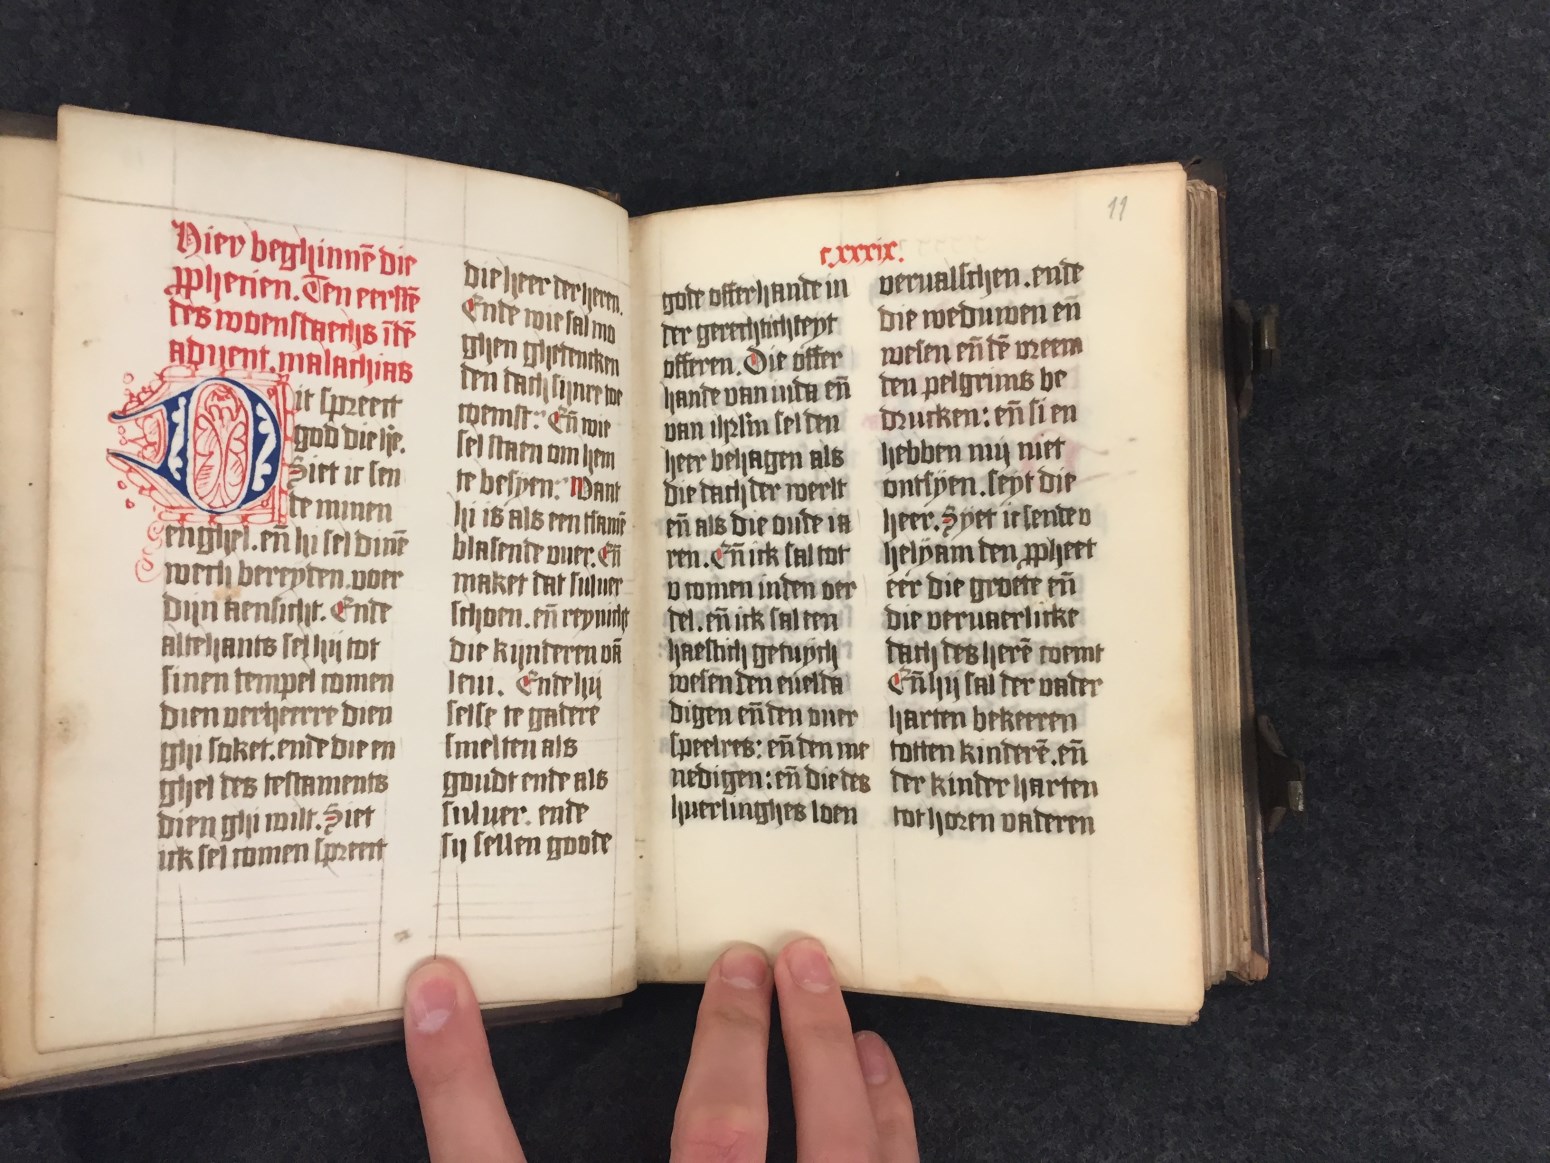 Hier beghinnē die
ꝓphecien. Ten eerstē
des woensdaechs ītē
aduent. malachias
Dit spreect
god die hē.
Siet ic sen
de minen
enghel. eñ hi sel dinē
wech bereyden voer
dijn aensicht. Ende
altehants sel hij tot
sinen tempel comen
dien verheerre dien
ghi soket. ende die en
ghel des testaments
dien ghi wilt. Siet
ick sel comen spreect
die heer der heren.
Ende wie sal mo
ghen ghedencken
den dach sijnre toe
coemst: Eñ wie
sel staen om hem
te besyen: Want
hi is als een flāme
blasende vuer. Eñ
maket dat siluer
schoen. eñ reynicht
die kijnderen vā
leui. Ende hij
selse te gaderē
smelten als
goudt ende als
siluer. ende
sij sellen goode
cxxxix.
11
gode offerhande in
der gerechticheyt
offeren. Die offer
hande van iuda eñ
van ihrlm̄ sel den
heer behagen als
die dach der werlt
eñ als die oude ia
ren. Eñ ick sal tot
v comen inden oer
del. eñ ick sal een
haestich getuych
wesen den euelda
digen eñ den ouer
speelres: eñ den me
nedigen: eñ die des
huerlinghes loen
vervalschen. ende
die weduwen eñ
wesen eñ dē vreem
den pelgrims be
drucken: eñ si en
hebben mij niet
ontsyen. seyt die
heer. Syet ic sende v
helyam den ꝓpheet
eer die groete eñ
die veruaerlicke
dach des herē coemt
Eñ hij sal der vader
harten bekeeren
totten kinderē. eñ
der kinder harten
tot horen vaderen